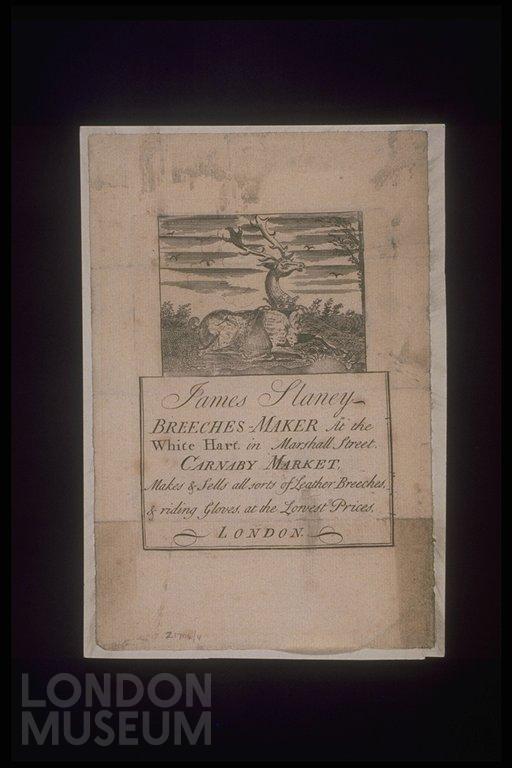 James Slaney
BREECHES-MAKER At the
White Hart in Marshall Street.
CARNABY MARKET,
Makes & Sells all sorts of Leather Breeches,
& riding Gloves, at the Lowest Prices,
LONDON.
LONDON
MUSEUM